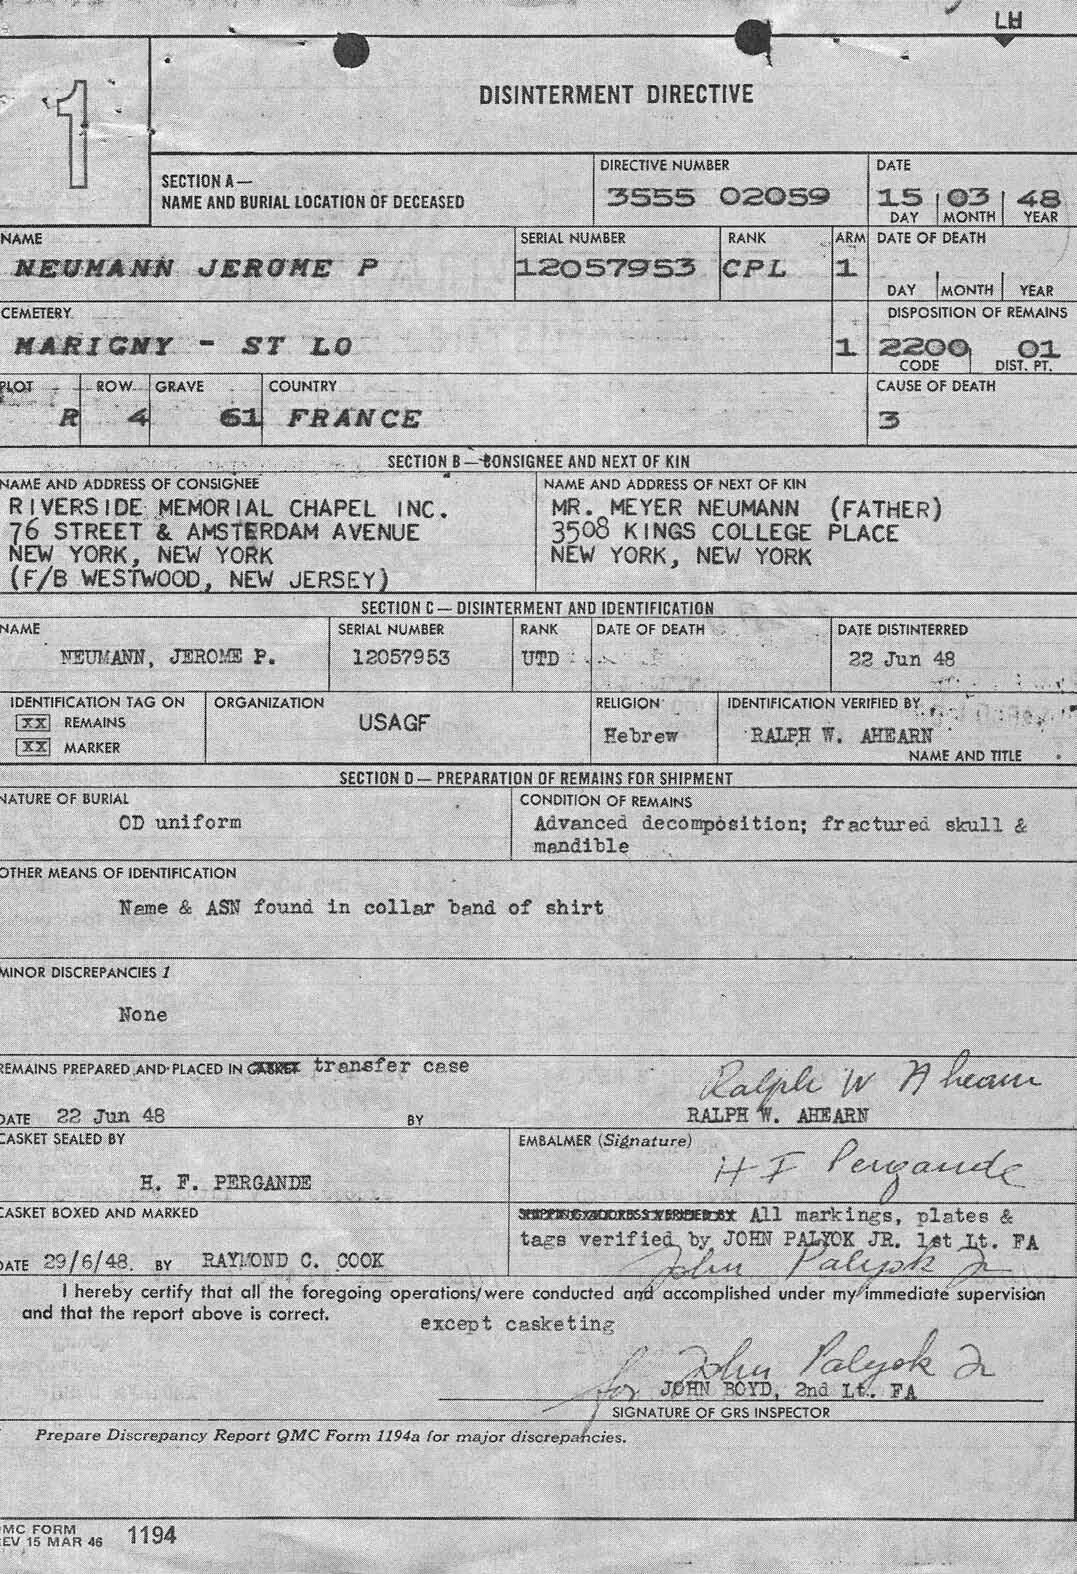 LH
1
DISINTERMENT DIRECTIVE
SECTION A—
NAME AND BURIAL LOCATION OF DECEASED
DIRECTIVE NUMBER
3555 02059
DATE
15 03 48
DAY MONTH YEAR
NAME
NEUMANN JEROME P
SERIAL NUMBER
12057953
RANK
CPL
ARM
1
DATE OF DEATH
DAY MONTH YEAR
CEMETERY
MARIGNY - ST LO
1
DISPOSITION OF REMAINS
2200 01
CODE DIST. PT.
PLOT ROW GRAVE COUNTRY
R 4 61 FRANCE
CAUSE OF DEATH
3
SECTION B — CONSIGNEE AND NEXT OF KIN
NAME AND ADDRESS OF CONSIGNEE
RIVERSIDE MEMORIAL CHAPEL INC.
76 STREET & AMSTERDAM AVENUE
NEW YORK, NEW YORK
(F/B WESTWOOD, NEW JERSEY)
NAME AND ADDRESS OF NEXT OF KIN
MR. MEYER NEUMANN (FATHER)
3508 KINGS COLLEGE PLACE
NEW YORK, NEW YORK
SECTION C — DISINTERMENT AND IDENTIFICATION
NAME
NEUMANN, JEROME P.
SERIAL NUMBER
12057953
RANK
UTD
DATE OF DEATH
DATE DISTINTERRED
22 Jun 48
IDENTIFICATION TAG ON
XX REMAINS
XX MARKER
ORGANIZATION
USAGF
RELIGION
Hebrew
IDENTIFICATION VERIFIED BY
RALPH W. AHEARN
NAME AND TITLE
SECTION D — PREPARATION OF REMAINS FOR SHIPMENT
NATURE OF BURIAL
OD uniform
CONDITION OF REMAINS
Advanced decomposition; fractured skull &
mandible
OTHER MEANS OF IDENTIFICATION
Name & ASN found in collar band of shirt
MINOR DISCREPANCIES 1
None
REMAINS PREPARED AND PLACED IN CASKET transfer case
Ralph W Ahearn
DATE 22 Jun 48 BY RALPH W. AHEARN
CASKET SEALED BY
H. F. PERGANDE
EMBALMER (Signature)
H F Pergande
CASKET BOXED AND MARKED
DATE 29/6/48. BY RAYMOND C. COOK
SHIPPING ADDRESS VERIFIED BY All markings, plates &
tags verified by JOHN PALYOK JR. 1st Lt. FA
John Palyok Jr
I hereby certify that all the foregoing operations were conducted and accomplished under my immediate supervision
and that the report above is correct.
except casketing
for John Palyok Jr
JOHN BOYD, 2nd Lt. FA
SIGNATURE OF GRS INSPECTOR
Prepare Discrepancy Report QMC Form 1194a for major discrepancies.
MC FORM
EV 15 MAR 46 1194